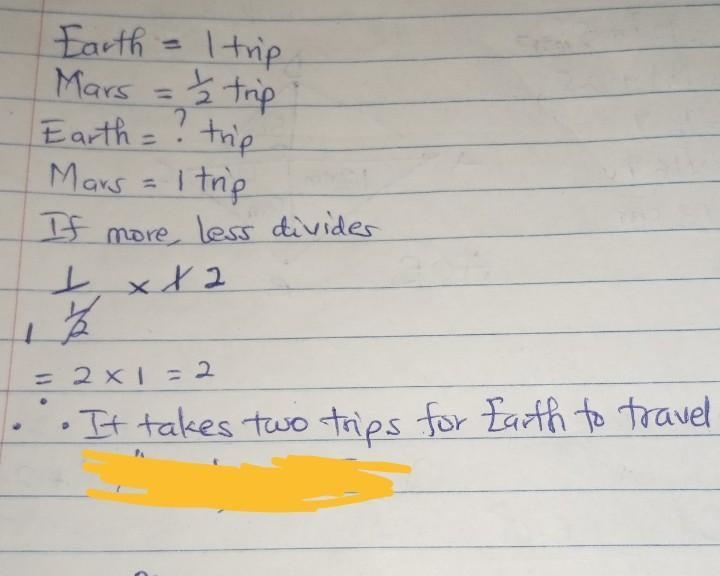 Earth = 1 trip
Mars = 1/2 trip
Earth = ? trip
Mars = 1 trip
If more, less divides
1 × 1 2
1 1/2
= 2 × 1 = 2
∴ It takes two trips for Earth to travel